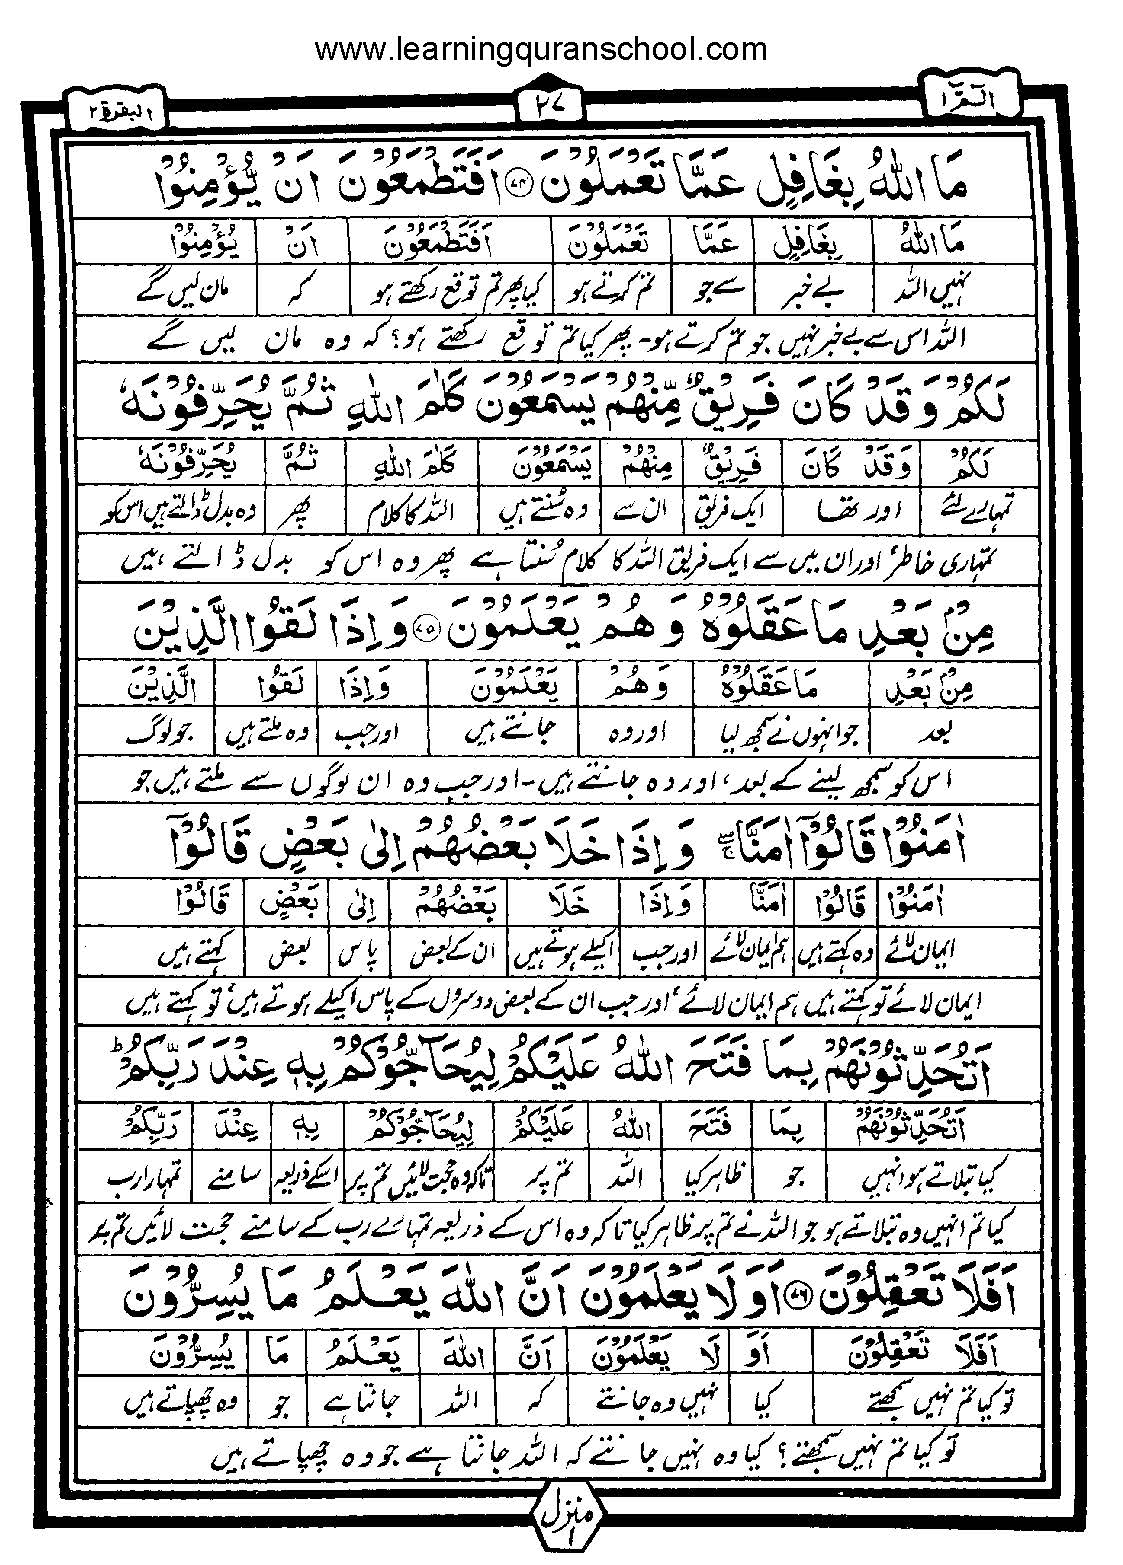 www.learningquranschool.com
الٓمّٓ ١ ٢٧ البقرة ٢
مَا اللّٰهُ بِغَافِلٍ عَمَّا تَعْمَلُوْنَ ﴿٧٤﴾ اَفَتَطْمَعُوْنَ اَنْ يُّؤْمِنُوْا
مَا اللّٰهُ بِغَافِلٍ عَمَّا تَعْمَلُوْنَ اَفَتَطْمَعُوْنَ اَنْ يُؤْمِنُوْا
نہیں اللہ بے خبر سے جو تم کرتے ہو کیا پھر تم توقع رکھتے ہو کہ مان لیں گے
اللہ اس سے بے خبر نہیں جو تم کرتے ہو۔ پھر کیا تم توقع رکھتے ہو؟ کہ وہ مان لیں گے
لَكُمْ وَقَدْ كَانَ فَرِيْقٌ مِّنْهُمْ يَسْمَعُوْنَ كَلٰمَ اللّٰهِ ثُمَّ يُحَرِّفُوْنَهٗ
لَكُمْ وَقَدْ كَانَ فَرِيْقٌ مِنْهُمْ يَسْمَعُوْنَ كَلٰمَ اللّٰهِ ثُمَّ يُحَرِّفُوْنَهٗ
تمہارے لئے اور تھا ایک فریق ان سے وہ سُنتے ہیں اللہ کا کلام پھر وہ بدل ڈالتے ہیں اس کو
تمہاری خاطر، اور ان میں سے ایک فریق اللہ کا کلام سُنتا ہے پھر وہ اس کو بدل ڈالتے ہیں
مِنْۢ بَعْدِ مَا عَقَلُوْهُ وَهُمْ يَعْلَمُوْنَ ﴿٧٥﴾ وَاِذَا لَقُوا الَّذِيْنَ
مِنْۢ بَعْدِ مَا عَقَلُوْهُ وَهُمْ يَعْلَمُوْنَ وَاِذَا لَقُوا الَّذِيْنَ
بعد جو انہوں نے سمجھ لیا اور وہ جانتے ہیں اور جب وہ ملتے ہیں جو لوگ
اس کو سمجھ لینے کے بعد، اور وہ جانتے ہیں۔ اور جب وہ ان لوگوں سے ملتے ہیں جو
اٰمَنُوْا قَالُوْٓا اٰمَنَّا وَاِذَا خَلَا بَعْضُهُمْ اِلٰى بَعْضٍ قَالُوْٓا
اٰمَنُوْا قَالُوْٓا اٰمَنَّا وَاِذَا خَلَا بَعْضُهُمْ اِلٰى بَعْضٍ قَالُوْٓا
ایمان لائے وہ کہتے ہیں ہم ایمان لائے اور جب اکیلے ہوتے ہیں ان کے بعض پاس بعض کہتے ہیں
ایمان لائے تو کہتے ہیں ہم ایمان لائے، اور جب ان کے بعض دوسروں کے پاس اکیلے ہوتے ہیں، تو کہتے ہیں
اَتُحَدِّثُوْنَهُمْ بِمَا فَتَحَ اللّٰهُ عَلَيْكُمْ لِيُحَآجُّوْكُمْ بِهٖ عِنْدَ رَبِّكُمْ ؕ
اَتُحَدِّثُوْنَهُمْ بِمَا فَتَحَ اللّٰهُ عَلَيْكُمْ لِيُحَآجُّوْكُمْ بِهٖ عِنْدَ رَبِّكُمْ
کیا بتلاتے ہو انہیں جو ظاہر کیا اللہ تم پر تاکہ وہ حجت لائیں تم پر اسکے ذریعہ سامنے تمہارا رب
کیا تم انہیں وہ بتلاتے ہو جو اللہ نے تم پر ظاہر کیا تاکہ وہ اس کے ذریعہ تمہارے رب کے سامنے حجت لائیں تم پر
اَفَلَا تَعْقِلُوْنَ ﴿٧٦﴾ اَوَلَا يَعْلَمُوْنَ اَنَّ اللّٰهَ يَعْلَمُ مَا يُسِرُّوْنَ
اَفَلَا تَعْقِلُوْنَ اَوَ لَا يَعْلَمُوْنَ اَنَّ اللّٰهَ يَعْلَمُ مَا يُسِرُّوْنَ
تو کیا تم نہیں سمجھتے کیا نہیں وہ جانتے کہ اللہ جانتا ہے جو وہ چھپاتے ہیں
تو کیا تم نہیں سمجھتے؟ کیا وہ نہیں جانتے کہ اللہ جانتا ہے جو وہ چھپاتے ہیں
منزل ١